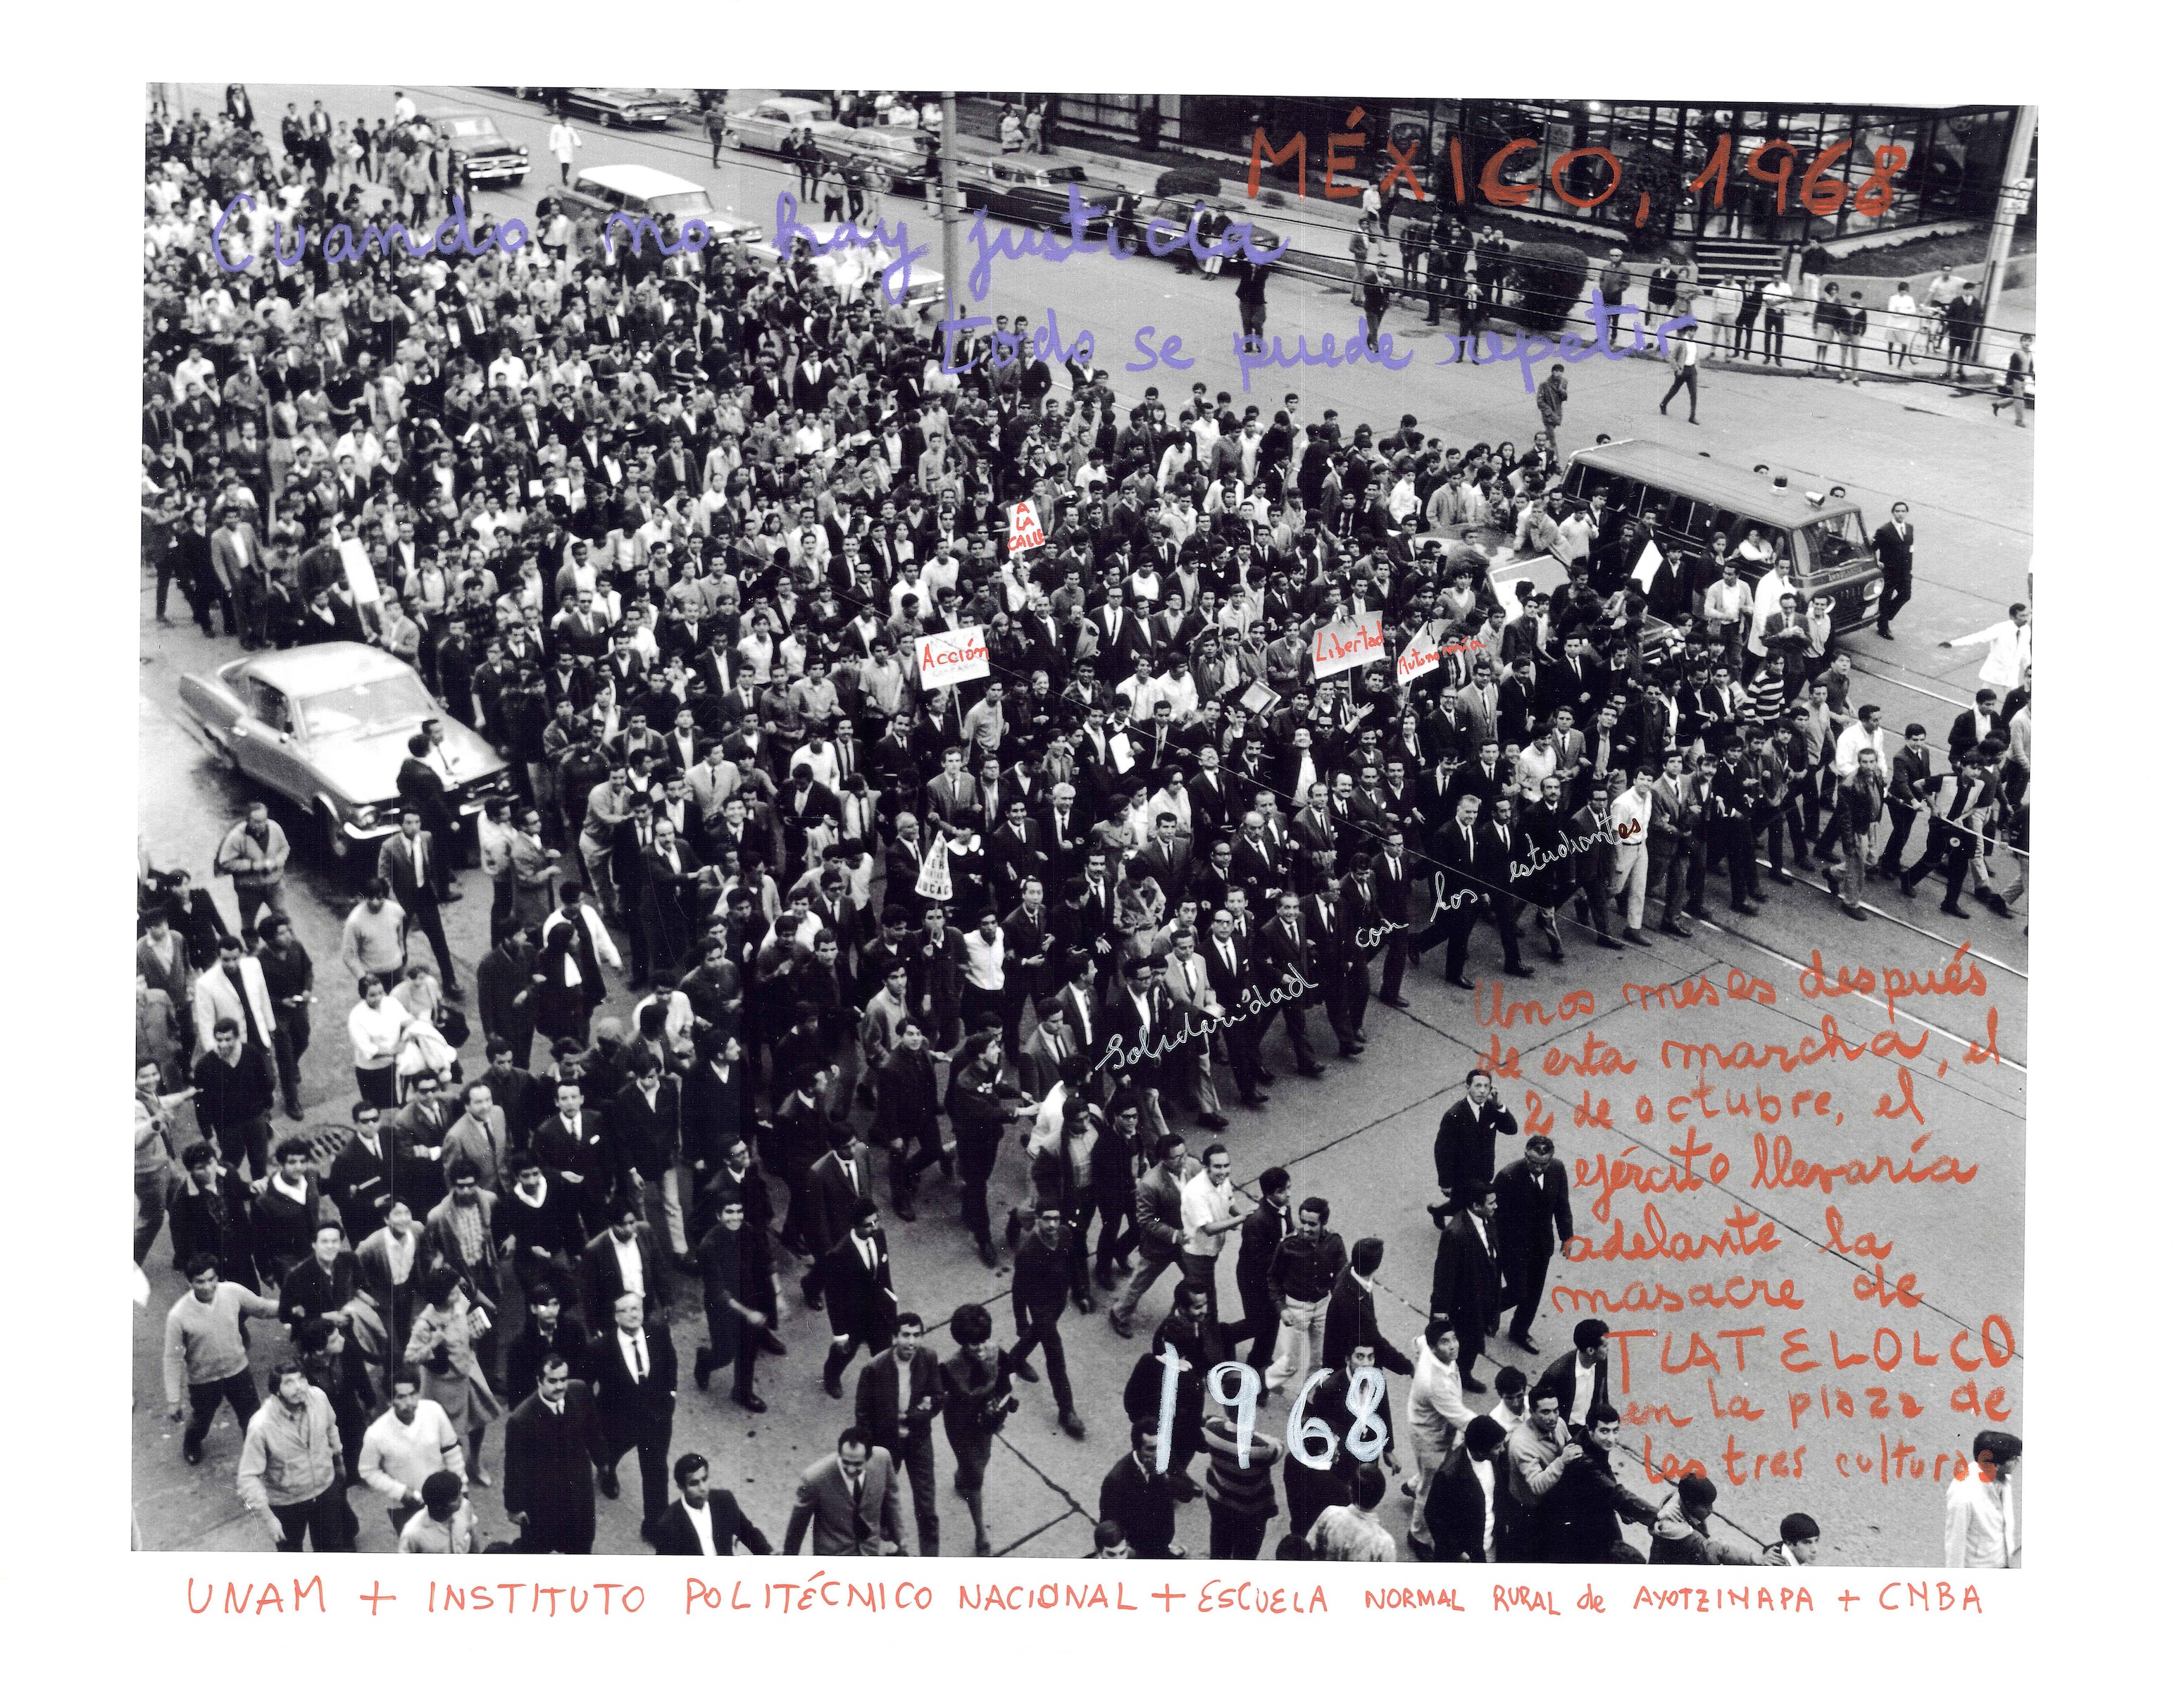 MÉXICO, 1968
Cuando no hay justicia
todo se puede repetir
A
LA
CALLE
Acción
Libertad
Autonomía
Solidaridad con los estudiantes
Unos meses después
de esta marcha, el
2 de octubre, el
ejército llevaría
adelante la
masacre de
TLATELOLCO
en la plaza de
las tres culturas
1968
UNAM + INSTITUTO POLITÉCNICO NACIONAL + ESCUELA NORMAL RURAL de AYOTZINAPA + CNBA